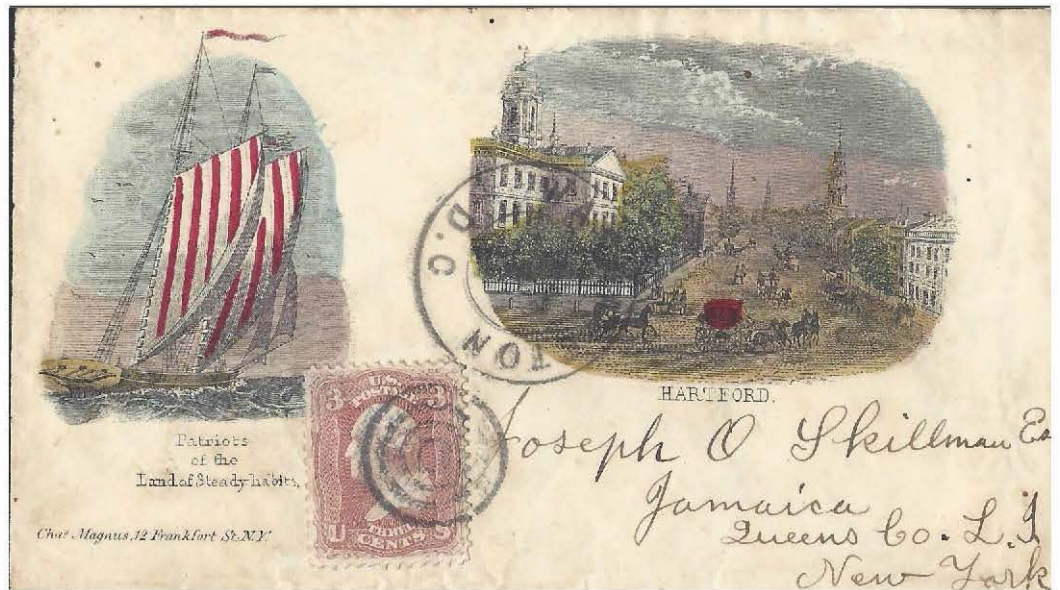 HARTFORD.
Patriots
of the
Land of Steady habits,
Chas Magnus, 12 Frankfort St. N.Y.
TON D.C
3 3
U.S.
POSTAGE
U S
CENTS
Joseph O Skillman Es
Jamaica
Queens Co. L.I
New York